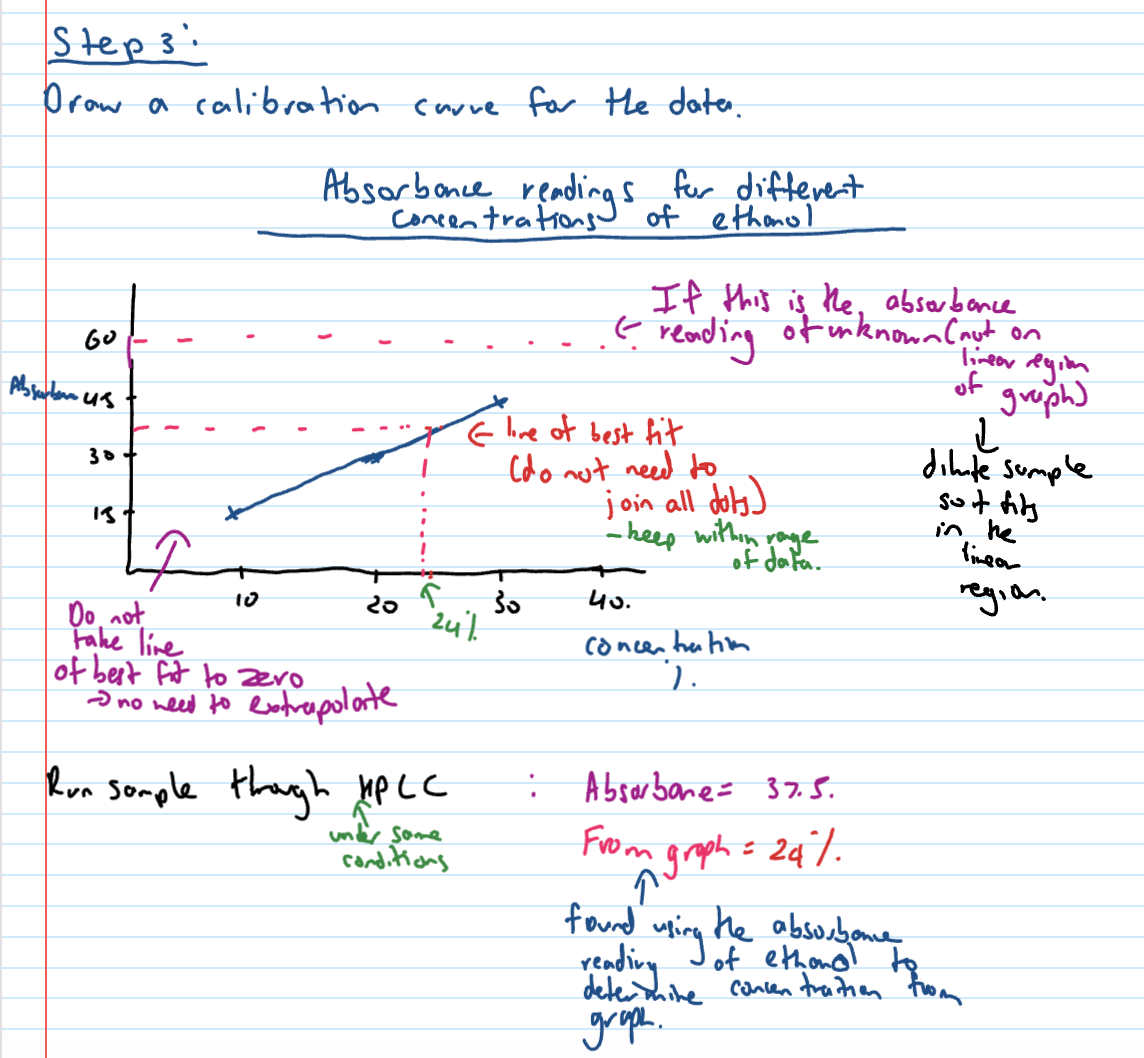 Step 3:
Draw a calibration curve for the data.
Absorbance readings for different
concentrations of ethanol
If this is the absorbance
← reading of unknown (not on
linear region
of graph)
↓
dilute sample
so it fits
in the
linear
region.
60
45
30
15
← line of best fit
(do not need to
join all dots)
- keep within range
of data.
10
20
30
40.
24%
concentration
%.
Do not
take line
of best fit to zero
→ no need to extrapolate
Run sample through HPLC : Absorbane = 37.5.
under same
conditions
From graph = 24%.
found using the absorbance
reading of ethanol to
determine concentration from
graph.